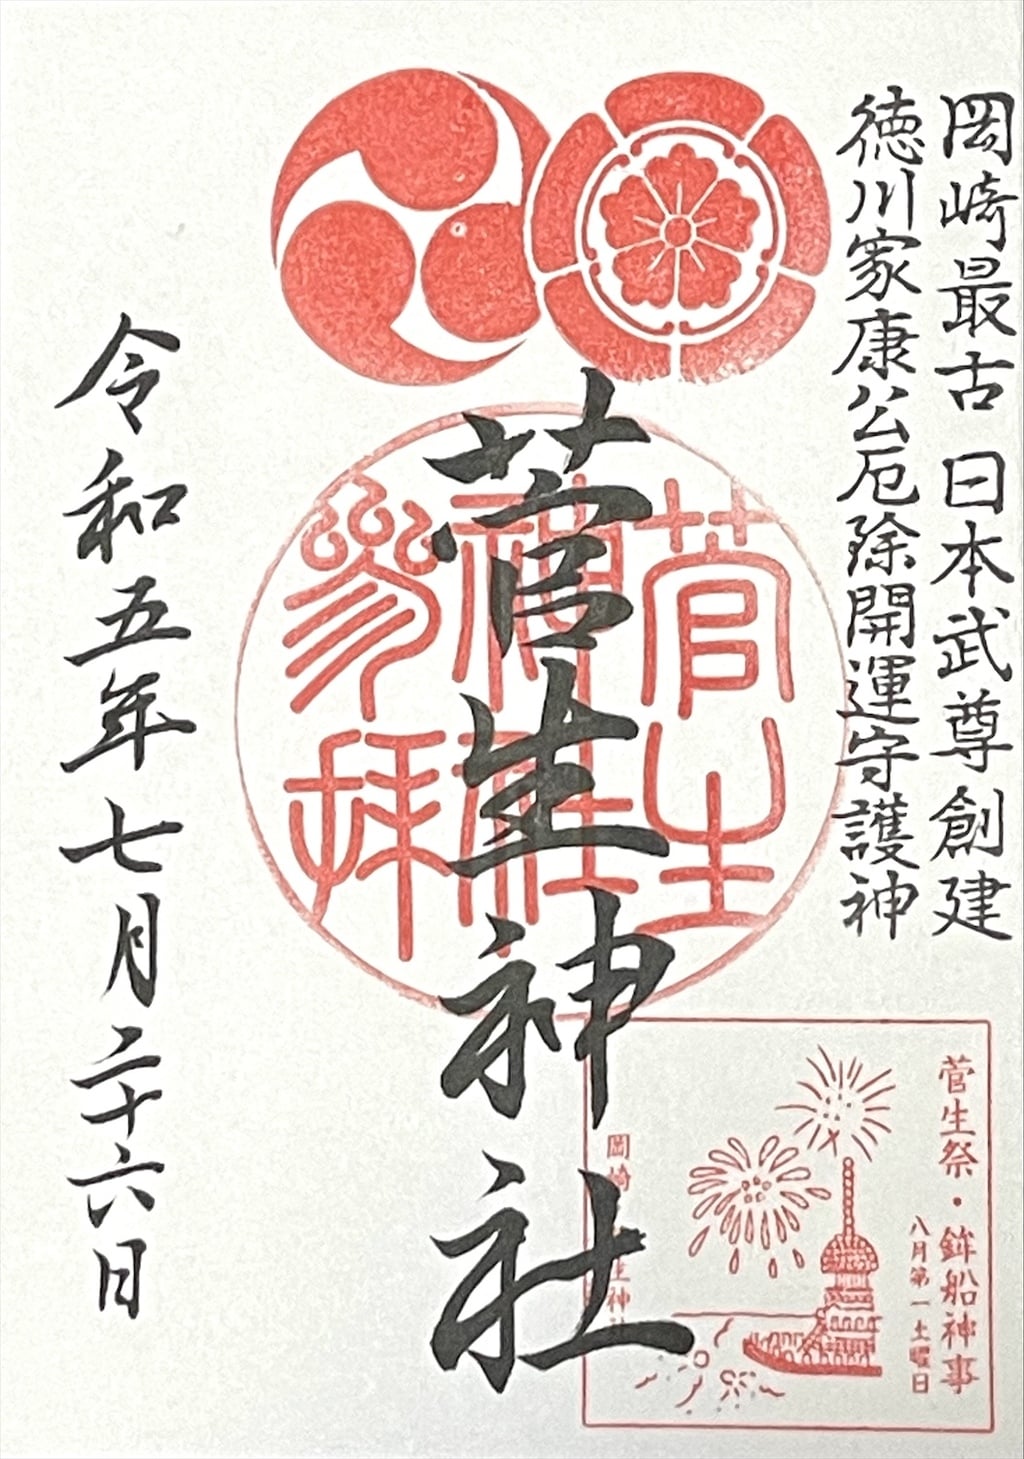 岡崎最古 日本武尊創建
徳川家康公厄除開運守護神
菅生神社
菅生
神社
参拝
菅生祭・鉾船神事
八月第一土曜日
岡崎 菅生神社
令和五年七月二十六日